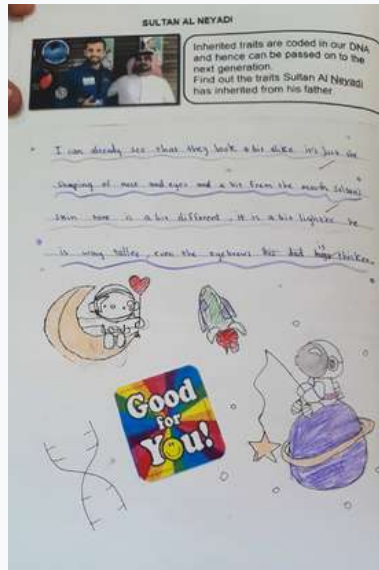 SULTAN AL NEYADI
Inherited traits are coded in our DNA
and hence can be passed on to the
next generation.
Find out the traits Sultan Al Neyadi
has inherited from his father.
I can already see that they look a bit alike it's just the
shaping of nose and eyes and a bit from the mouth Sultan's
skin tone is a bit different, it is a bit lighter he
is way taller, even the eyebrows his dad is thicker.
Good
for
You!